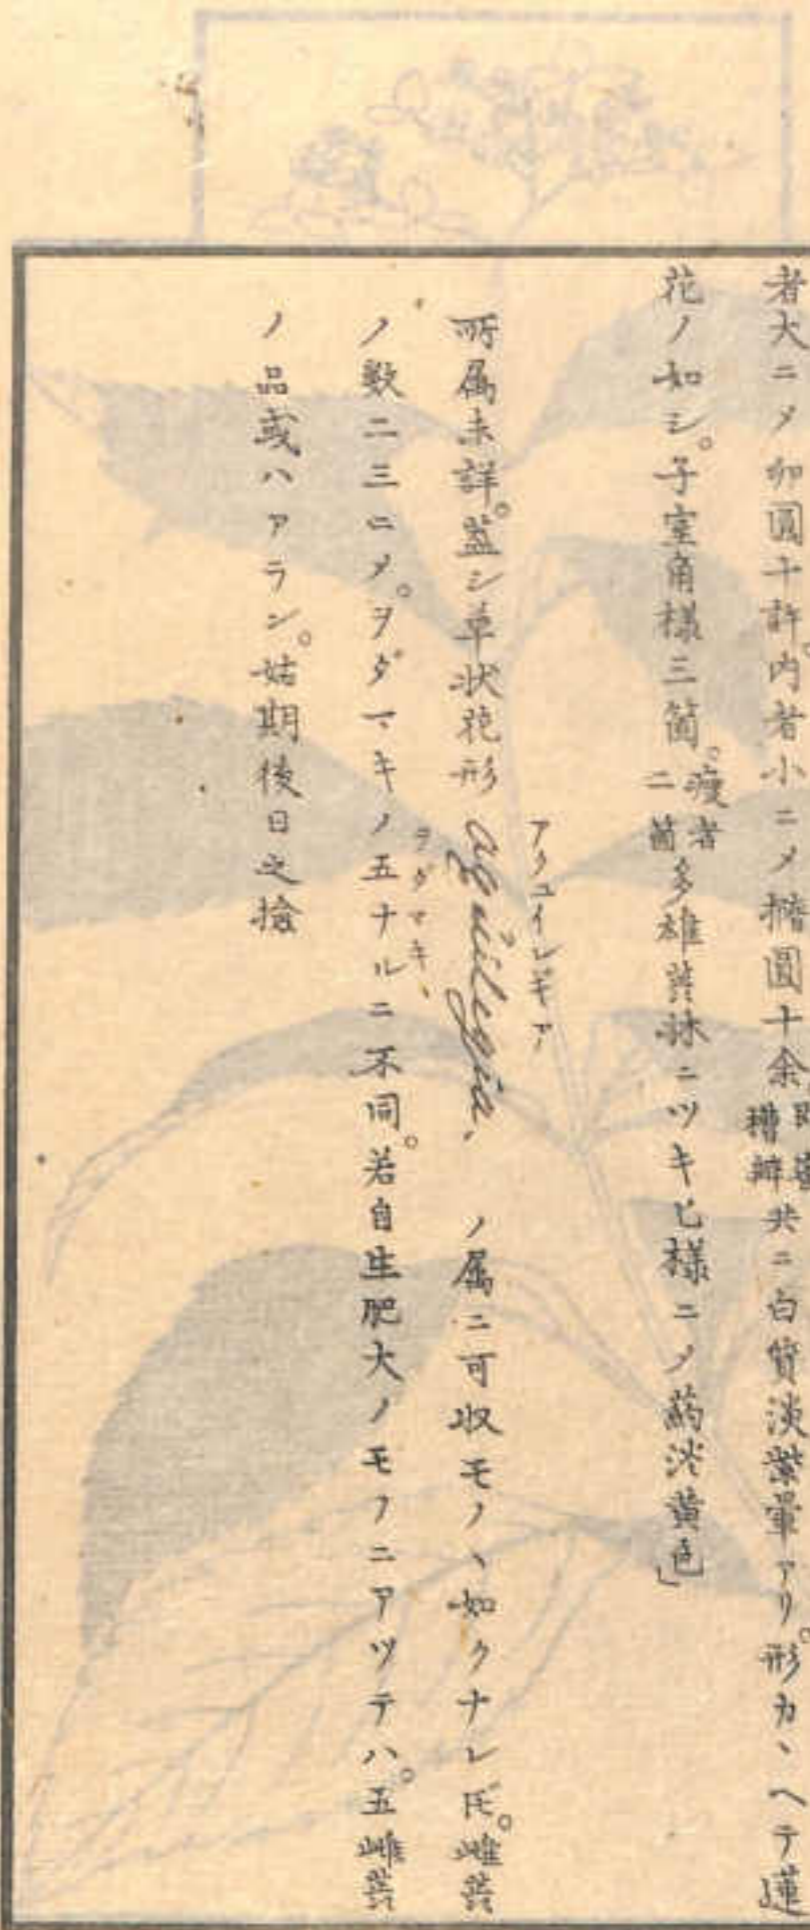 者大ニメ卵圓十許。内者小ニメ橢圓十余、即蜜槽瓣共ニ白質淡紫暈アリ。形カヽヘテ蓮
花ノ如シ。子室角様三箇。瘦者二箇多雄蕋牀ニツキヒ様ニノ葯淡黄色」
所属未詳。盖シ草状花形 アクユイレギア aquilegia, ヲダマキ、 ノ属ニ可収モノヽ如クナレ𪜈。雌蕋
ノ数二三ニメ。ヲダマキノ五ナルニ不同。若自生肥大ノモノニアツテハ。五雌蕋
ノ品或ハアラン。姑期後日之撿